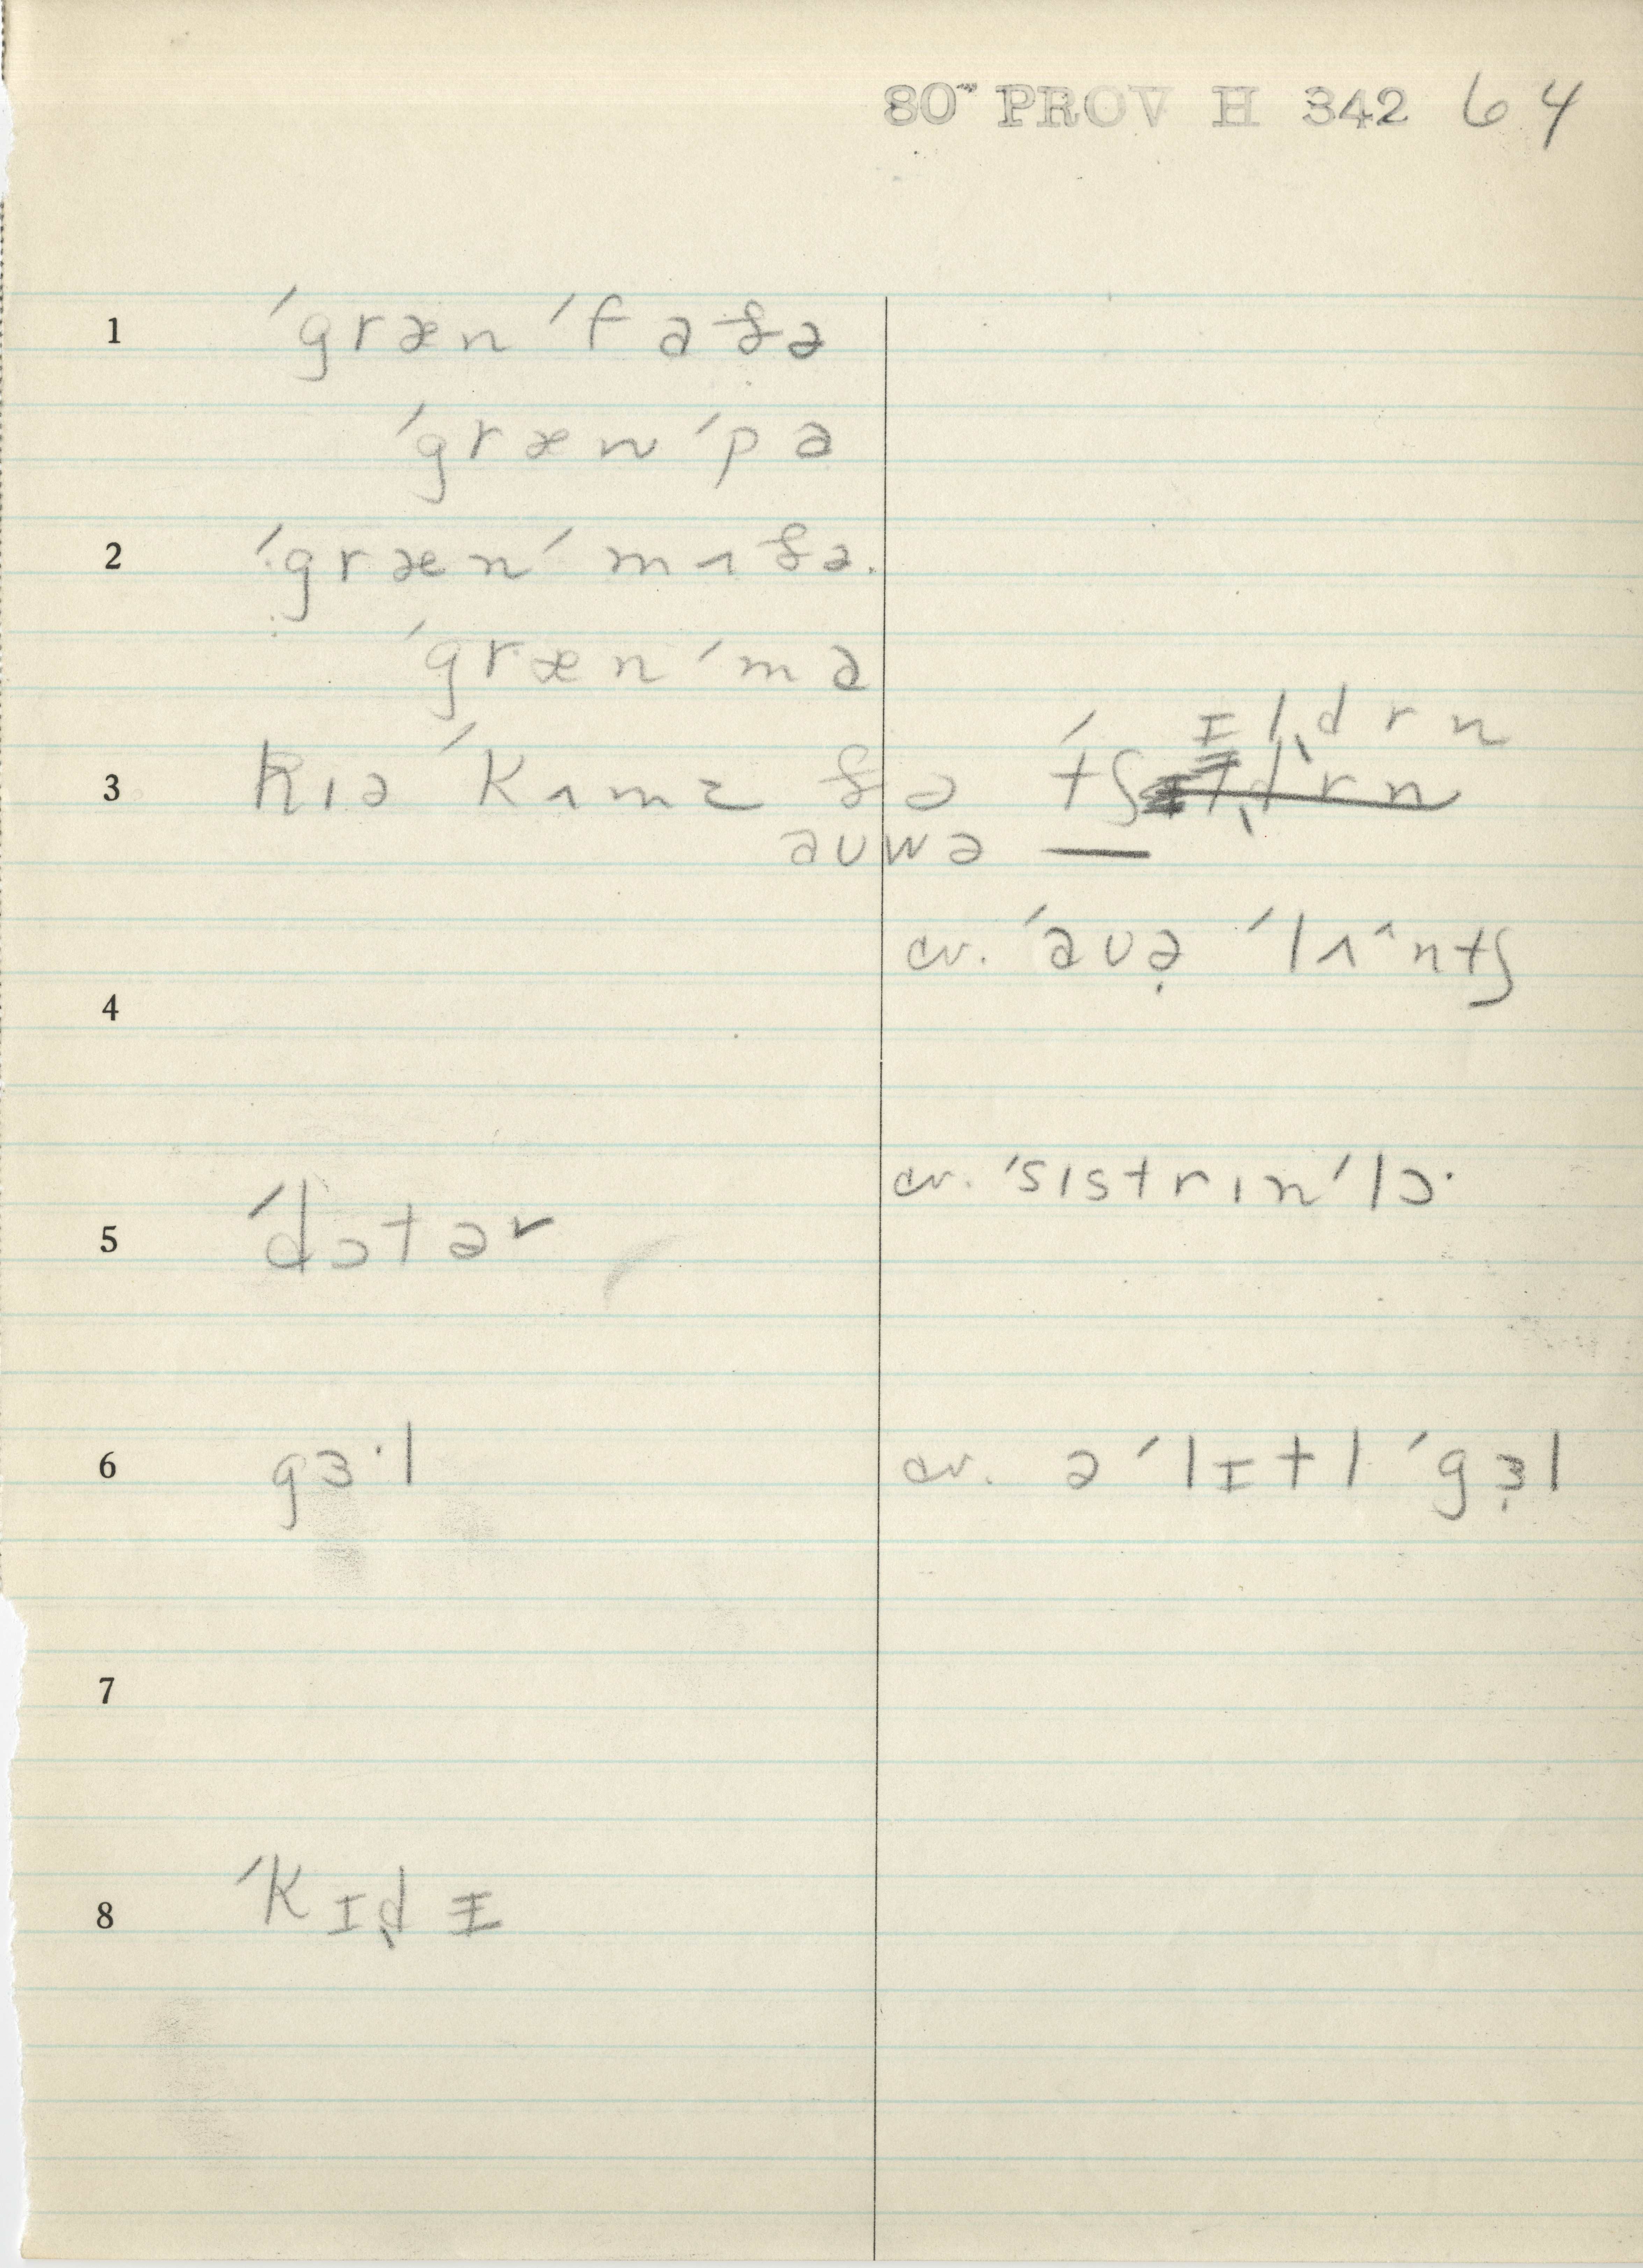 80" PROV H 342 64
1 ′græn ′faðə
′græn ′pa
2 ′græn ′mʌðə.
′græn ′ma
ɪl̥drn
3 hɪə ′kʌmz ðə ′tʃɪldrn
auwə —
cv. ′auə̣ ′lʌ^ntʃ
4
cv. ′sɪstrɪn ′lɔ·
5 ′dɔtər
6 gɜ·l cv. ə ′lɪtl ′gɜ̣l
7
8 ′kɪd̥ɪ